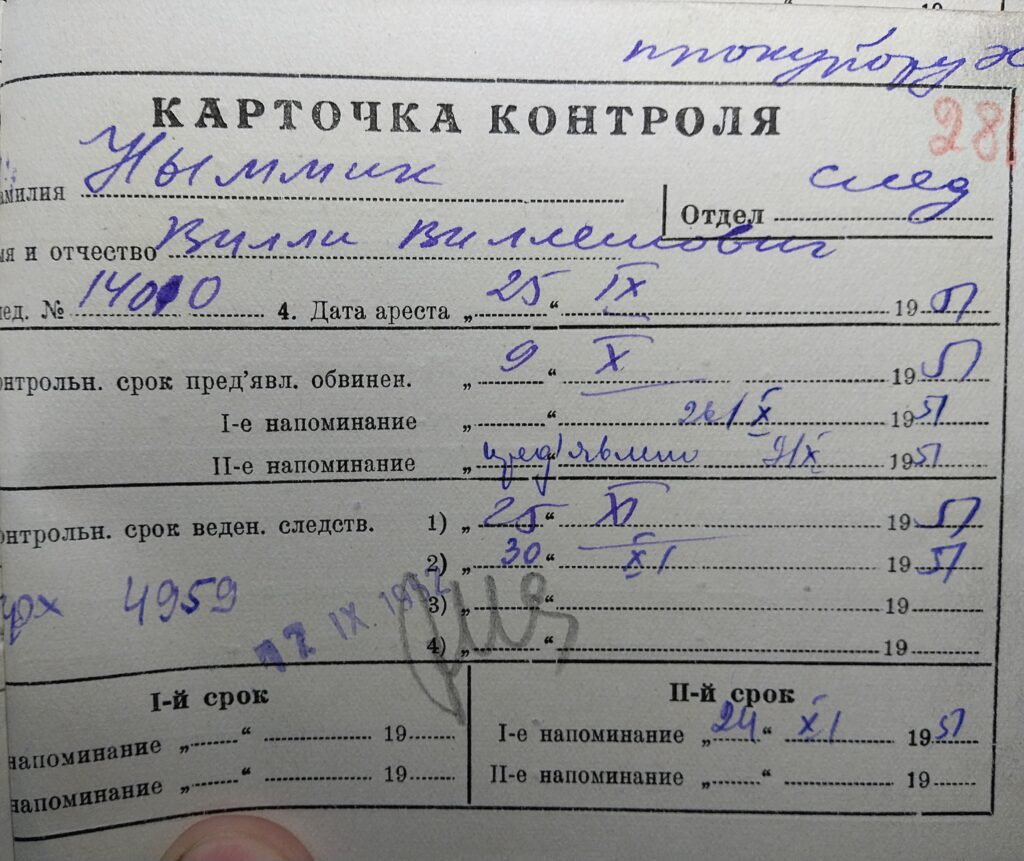 прокурору
КАРТОЧКА КОНТРОЛЯ
281
амилия Ныммик
Отдел след
мя и отчество Вилли Виллемович
лед. № 14010 4. Дата ареста „25“ IX 1951
онтрольн. срок пред’явл. обвинен. „9“ X 1951
I-е напоминание „ “ 26/X 1951
II-е напоминание „ пред'явлено “ 9/X 1951
онтрольн. срок веден. следств. 1) „25“ XI 1951
2) „30“ XI 1951
арх 4959
3) „ “ 19
17 IX. 1952
4) „ “ 19
I-й срок
II-й срок
напоминание „ “ 19
I-е напоминание „24“ XI 1951
напоминание „ “ 19
II-е напоминание „ “ 19